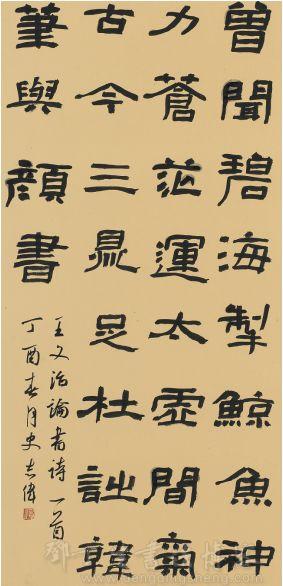 曾聞碧海掣鯨魚神
力蒼茫運太虛間氣
古今三鼎足杜詩韓
筆與顏書
王文治論書詩一首
丁酉春月史志偉